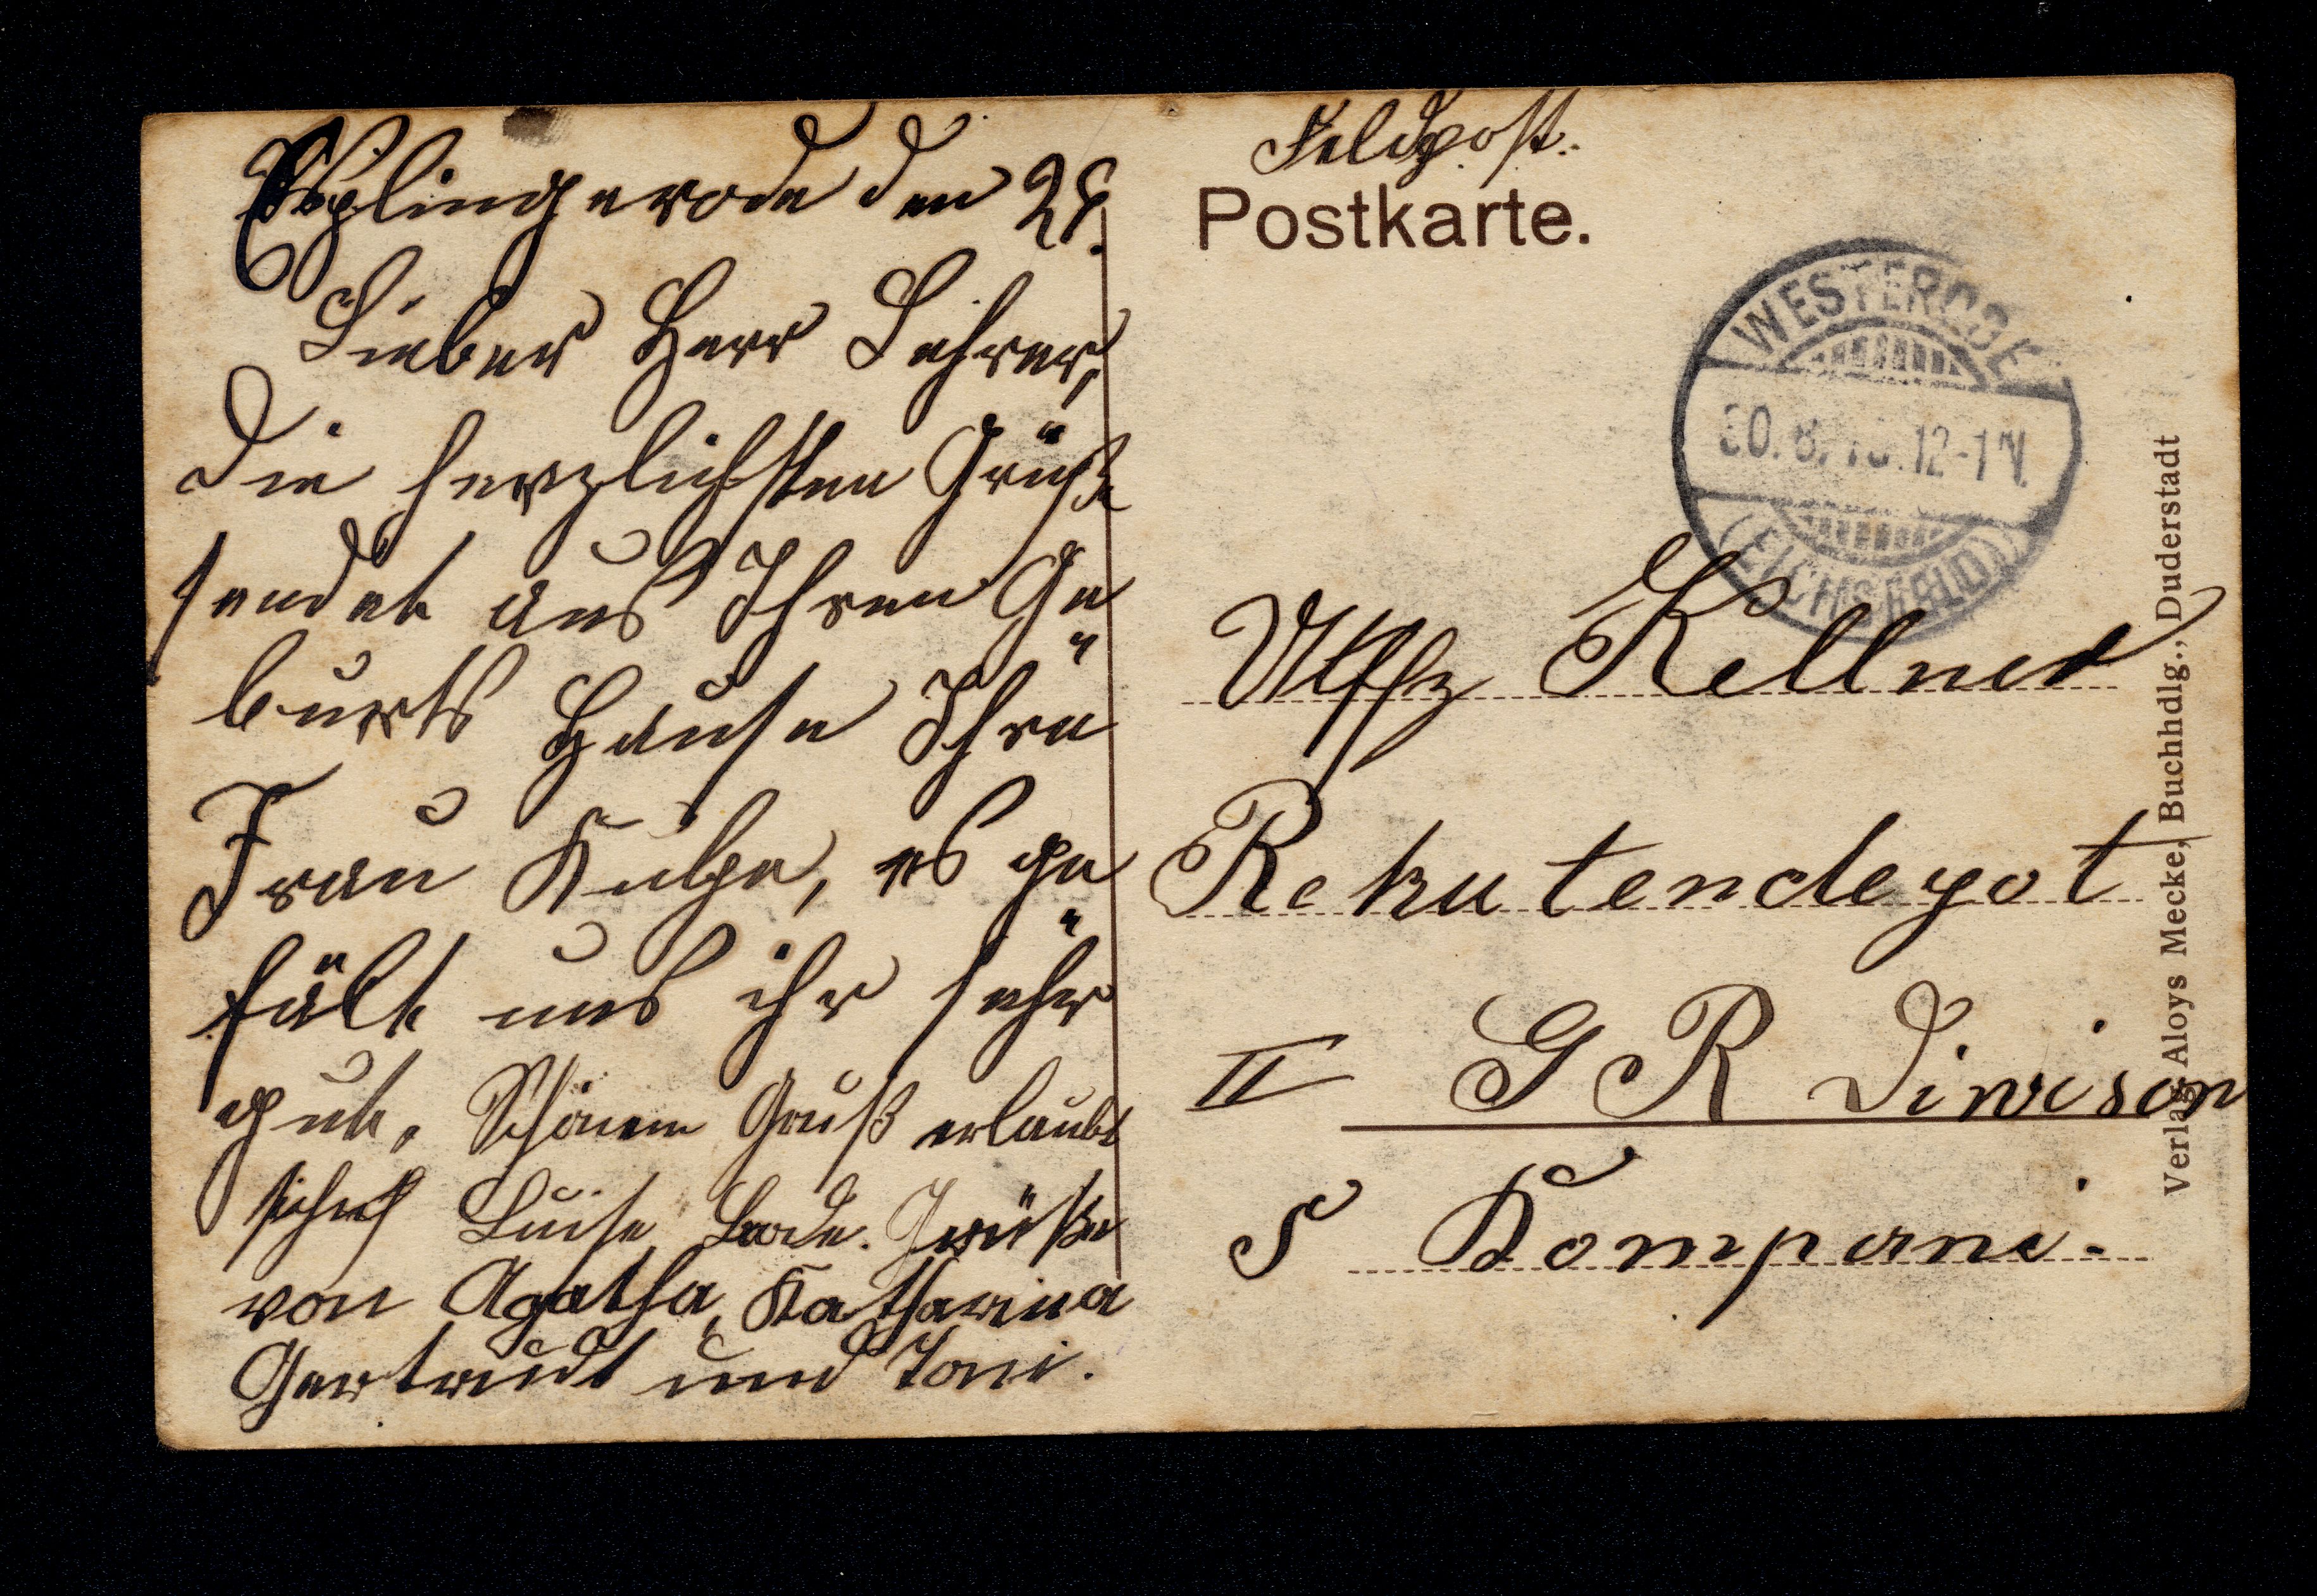 Esplingerode den 28.
Lieber Herr Lehrer,
Die herzlichsten Grüße
sendet aus Ihren Ge„
burts Hause Ihre
Frau Külpe, es ge„
fält uns ihr sehr
gut. Schönem Gruß erlaubt
sich Luise Bode. Grüße
von Agatha, Katharina
Gertrudt und Toni.
Feldpost.
Postkarte.
WESTERODE
30.8.  .12-1N.
(EICHSFELD)
Uffz Kellner
Rekutendepot
II G R Diwison
5 Kompani.
Verlag Aloys Mecke, Buchhdlg., Duderstadt